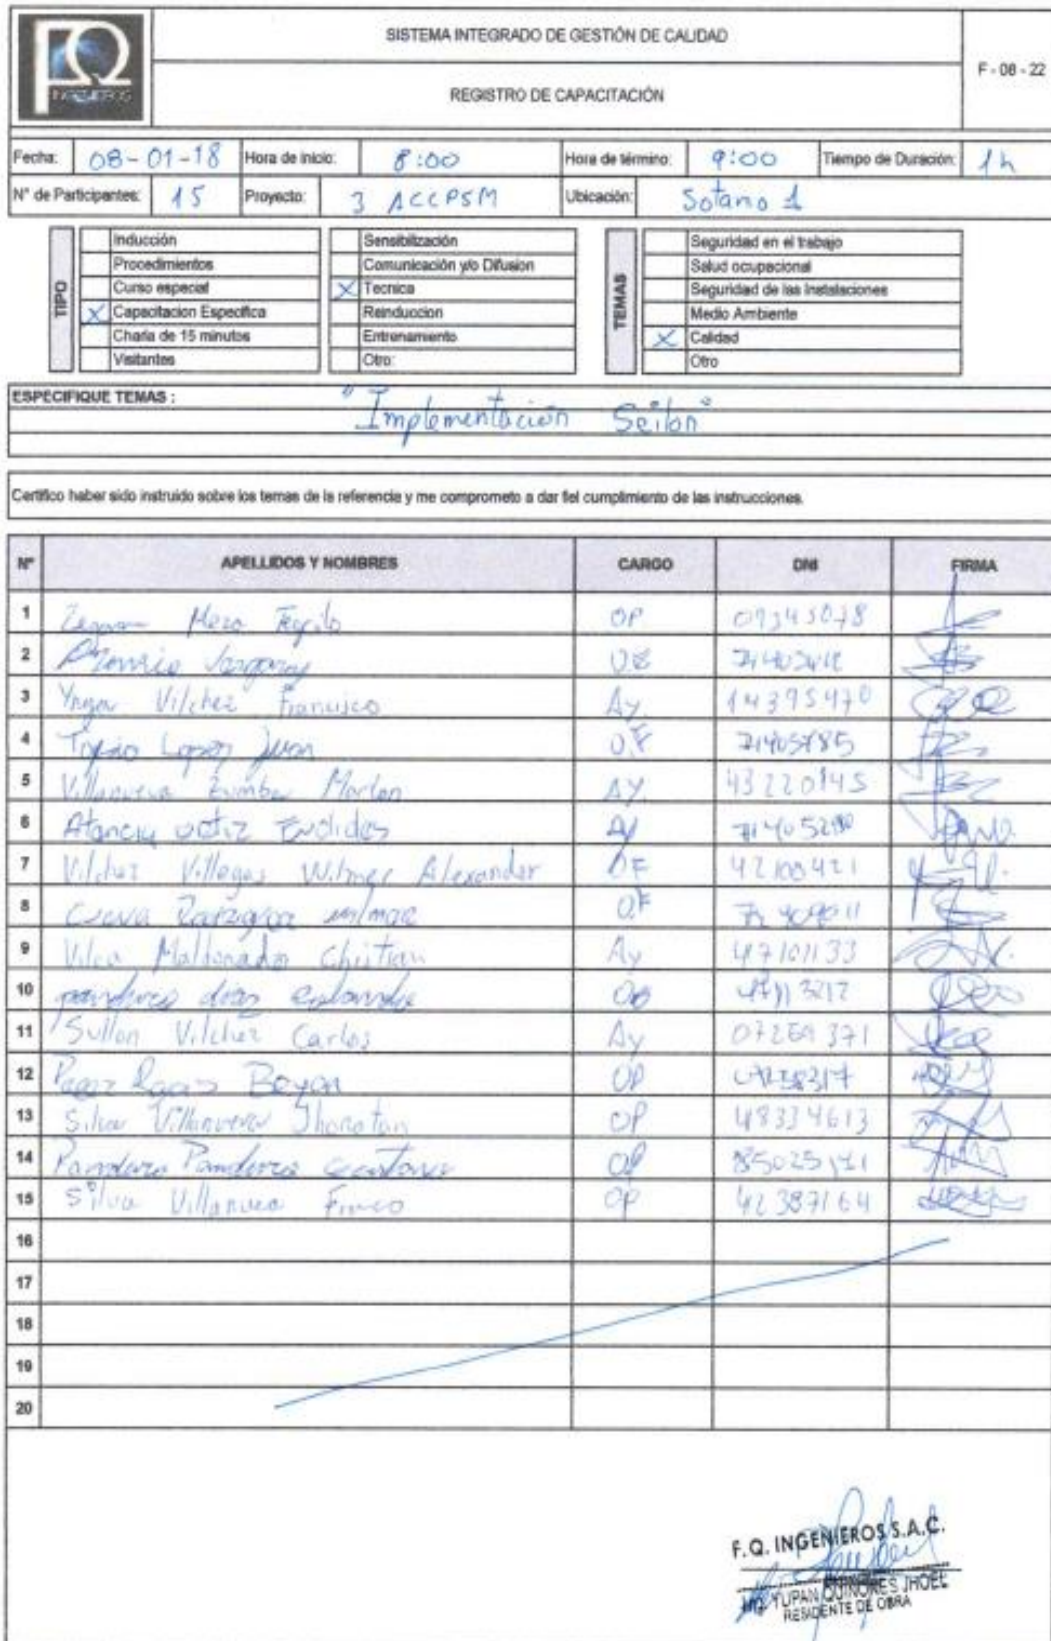 FQ
INGENIEROS
SISTEMA INTEGRADO DE GESTIÓN DE CALIDAD
REGISTRO DE CAPACITACIÓN
F - 08 - 22
Fecha: 08-01-18 Hora de inicio: 8:00 Hora de término: 9:00 Tiempo de Duración: 1h
N° de Participantes: 15 Proyecto: 3 ACCPSM Ubicación: Sotano 1
TIPO
Inducción
Procedimientos
Curso especial
X Capacitacion Especifica
Charla de 15 minutos
Visitantes
Sensibilización
Comunicación y/o Difusion
X Tecnica
Reinduccion
Entrenamiento
Otro:
TEMAS
Seguridad en el trabajo
Salud ocupacional
Seguridad de las Instalaciones
Medio Ambiente
X Calidad
Otro
ESPECIFIQUE TEMAS :
"Implementación Seilon"
Certifico haber sido instruido sobre los temas de la referencia y me comprometo a dar fiel cumplimiento de las instrucciones.
N° APELLIDOS Y NOMBRES CARGO DNI FIRMA
1 Meza OP
2
3 Vilchez Francisco Ay. 14395470
4 Lopez Juan OF 71405785
5 Villanueva Marlon AY. 43220145
6 Atancia Ortiz Euclides Ay
7 Vilchez Villegas Wilmer Alexander OF 42100421
8 Cueva OF
9 Vilca Maldonado Chistian Ay 47101133
10 diaz
11 Sullon Vilchez Carlos Ay 07269371
12 OP
13 Silva Villanueva Jhonatan OP 48334613
14 Panduro Panduro OP
15 Silva Villanueva OP 42387164
16
17
18
19
20
F.Q. INGENIEROS S.A.C.
ING. YUPAN QUIÑONES JHOEL
RESIDENTE DE OBRA